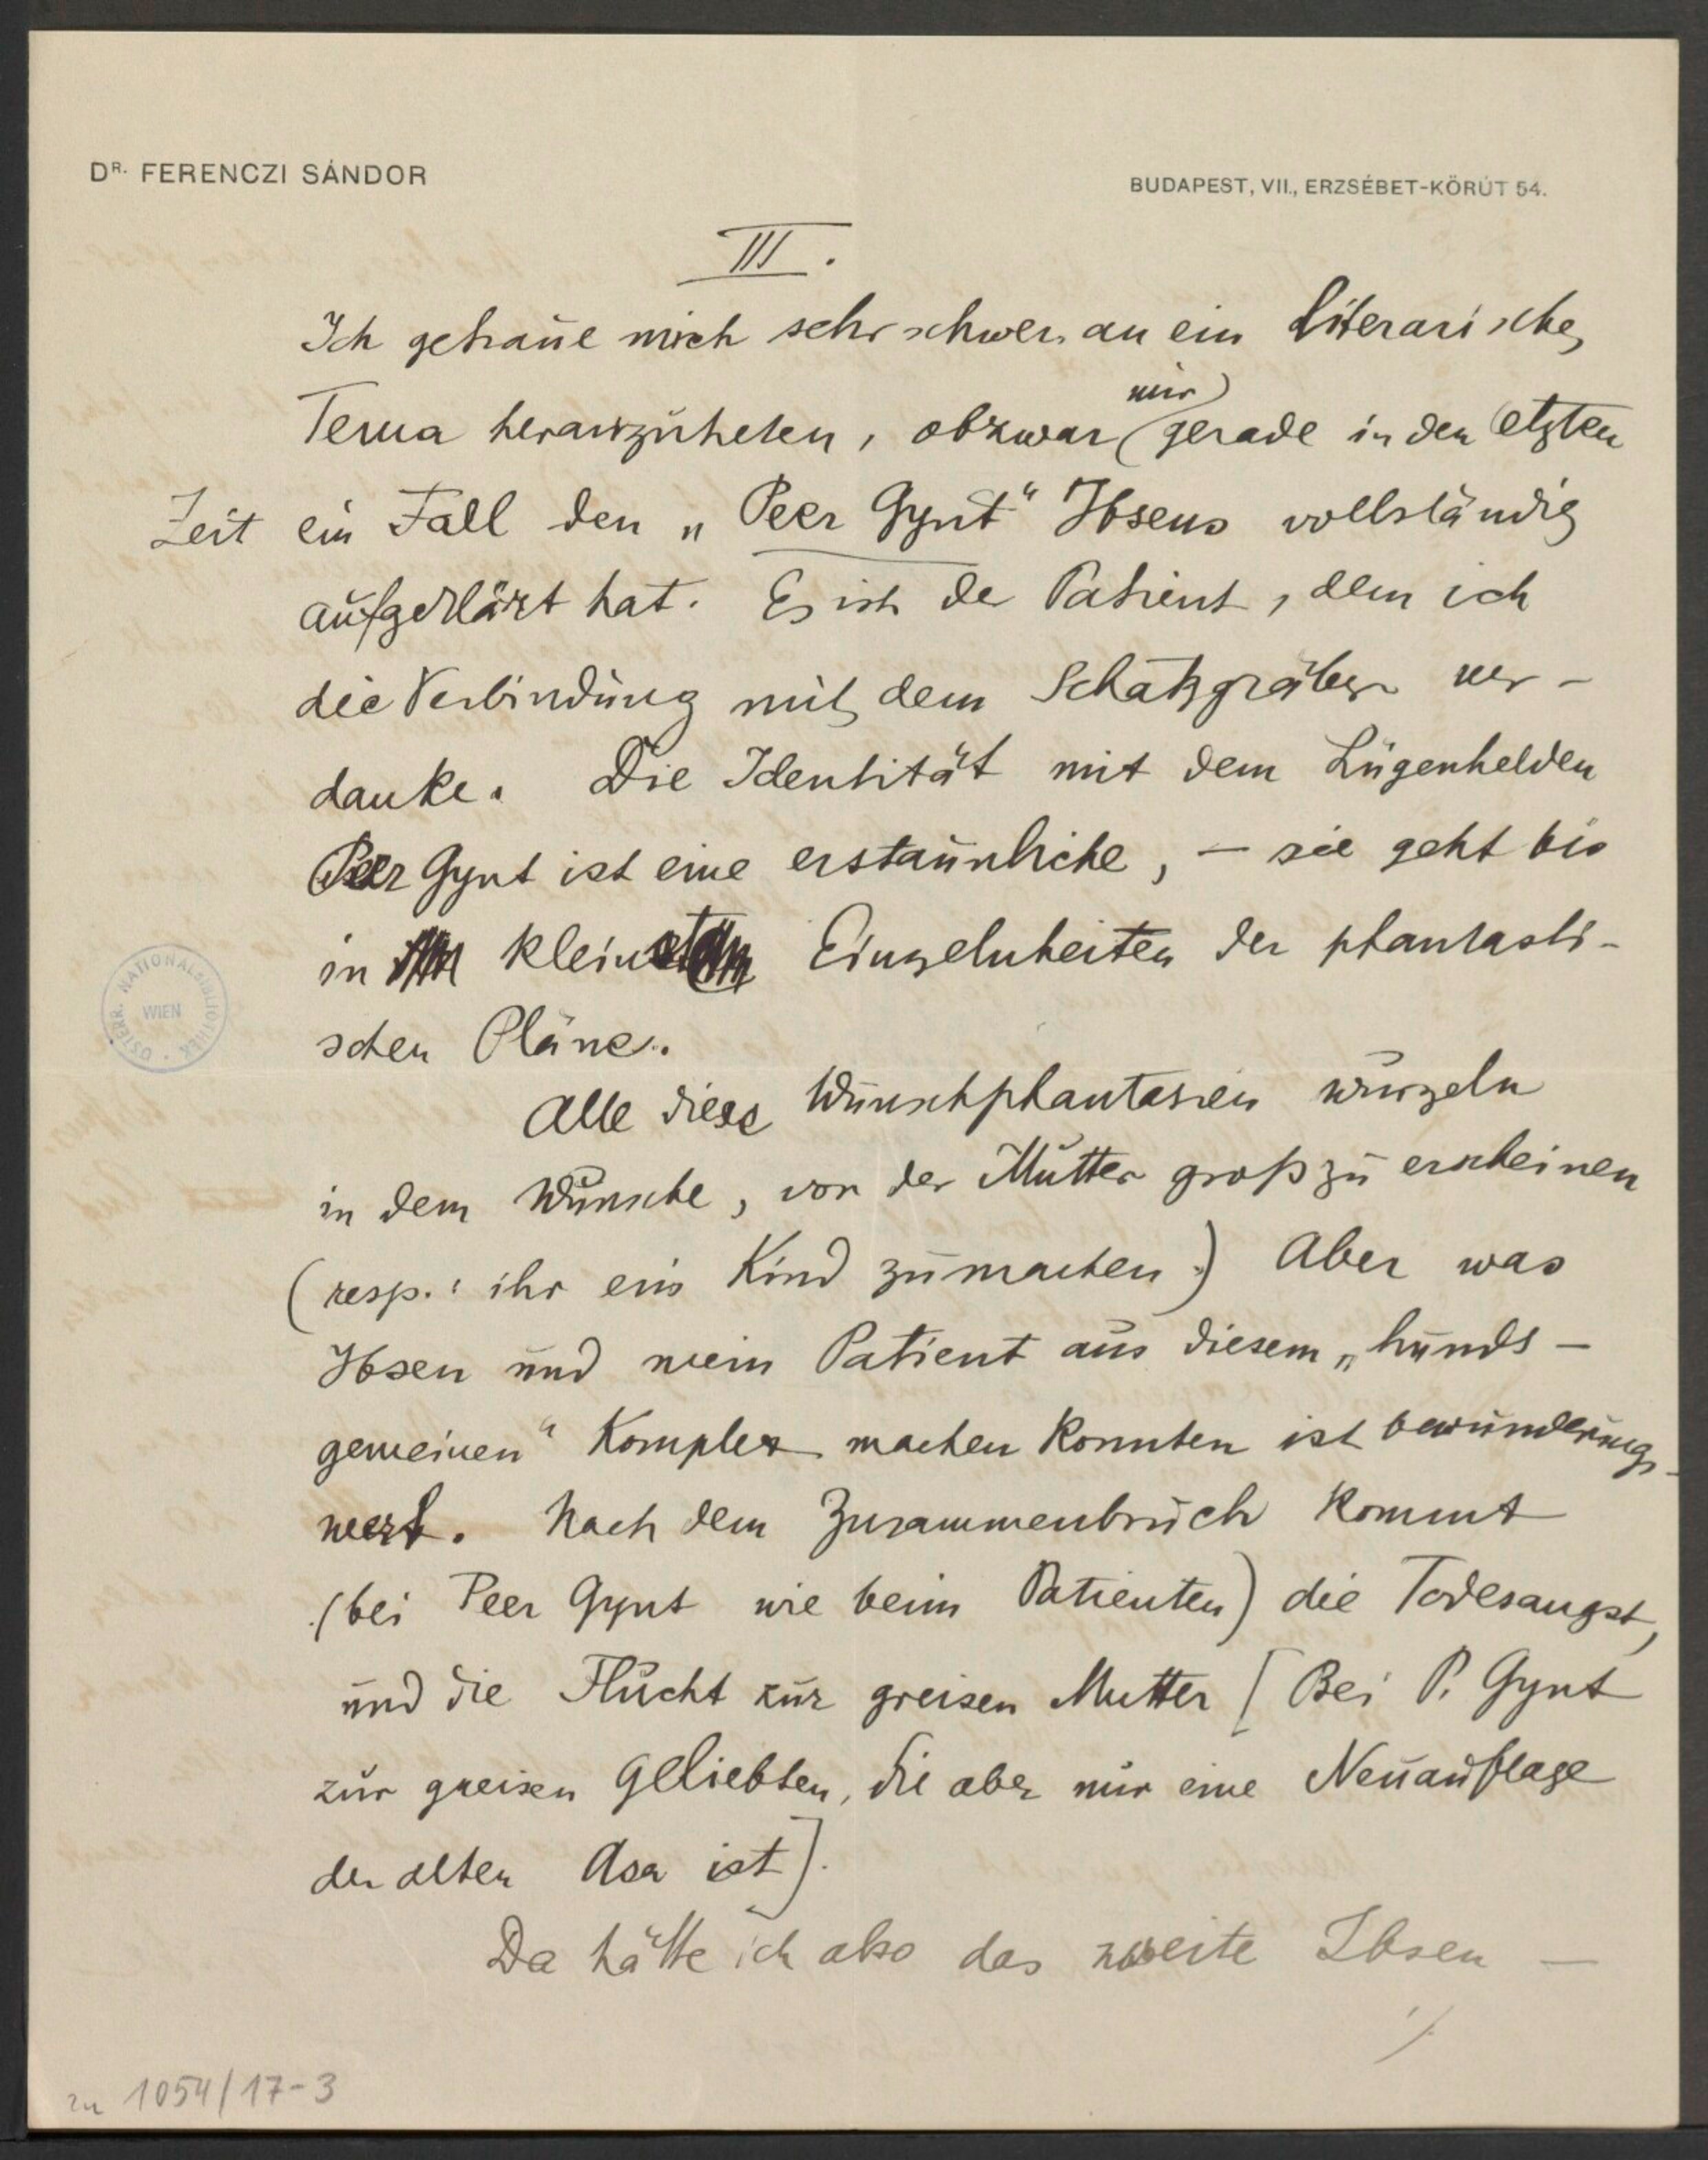 DR. FERENCZI SÁNDOR
BUDAPEST, VII., ERZSÉBET-KÖRÚT 54.
III.
Ich getraue mich sehr schwer an ein literarisches
Tema heranzutreten, obzwar mir gerade in den letzten
Zeit ein Fall den „Peer Gynt“ Ibsens vollständig
aufgeklärt hat. Es ist der Patient, dem ich
die Verbindung mit dem Schatzgräber ver-
danke. Die Identität mit dem Lügenhelden
Peer Gynt ist eine erstaunliche, – sie geht bis
in kleinste Einzelnheiten der phantasti-
schen Pläne.
Alle diese Wunschphantasien wurzeln
in dem Wunsche, vor der Mutter groß zu erscheinen
(resp.: ihr ein Kind zu machen.) Aber was
Ibsen und mein Patient aus diesem „hunds-
gemeinen“ Komplex machen konnten ist bewunderungs-
wert. Nach dem Zusammenbruch kommt
(bei Peer Gynt wie beim Patienten) die Todesangst,
und die Flucht zur greisen Mutter [Bei P. Gynt
zur greisen Geliebten, die aber nur eine Neuauflage
der alten Asa ist].
Da hätte ich also das zweite Ibsen –
./.
ÖSTERR. NATIONALBIBLIOTHEK WIEN
zu 1054/17-3